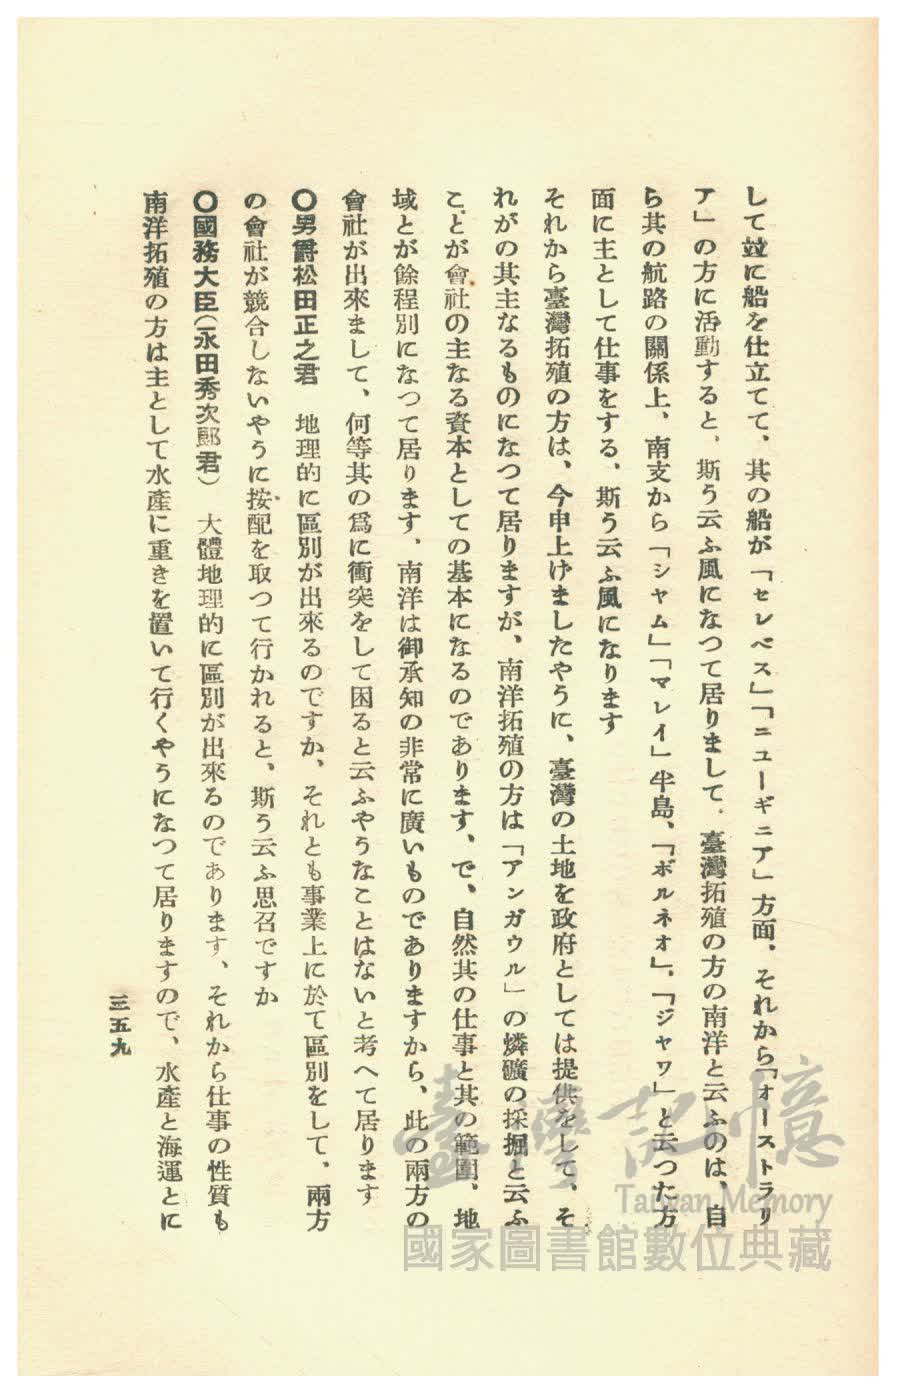 して竝に船を仕立てて、其の船が「セレベス」「ニューギニア」方面、それから「オーストラリ
ア」の方に活動すると、斯う云ふ風になつて居りまして、臺灣拓殖の方の南洋と云ふのは、自
ら其の航路の關係上、南支から「シャム」「マレイ」半島、「ボルネオ」、「ジャワ」と云つた方
面に主として仕事をする、斯う云ふ風になります
それから臺灣拓殖の方は、今申上けましたやうに、臺灣の土地を政府としては提供をして、そ
れがの其主なるものになつて居りますが、南洋拓殖の方は「アンガウル」の燐礦の採掘と云ふ
ことが會社の主なる資本としての基本になるのであります、で、自然其の仕事と其の範圍、地
域とが餘程別になつて居ります、南洋は御承知の非常に廣いものでありますから、此の兩方の
會社が出來まして、何等其の爲に衝突をして困ると云ふやうなことはないと考へて居ります
〇男爵松田正之君　地理的に區別が出來るのですか、それとも事業上に於て區別をして、兩方
の會社が競合しないやうに按配を取つて行かれると、斯う云ふ思召ですか
〇國務大臣(永田秀次郞君)　大體地理的に區別が出來るのであります、それから仕事の性質も
南洋拓殖の方は主として水產に重きを置いて行くやうになつて居りますので、水產と海運とに
三五九
臺灣記憶
Taiwan Memory
國家圖書館數位典藏